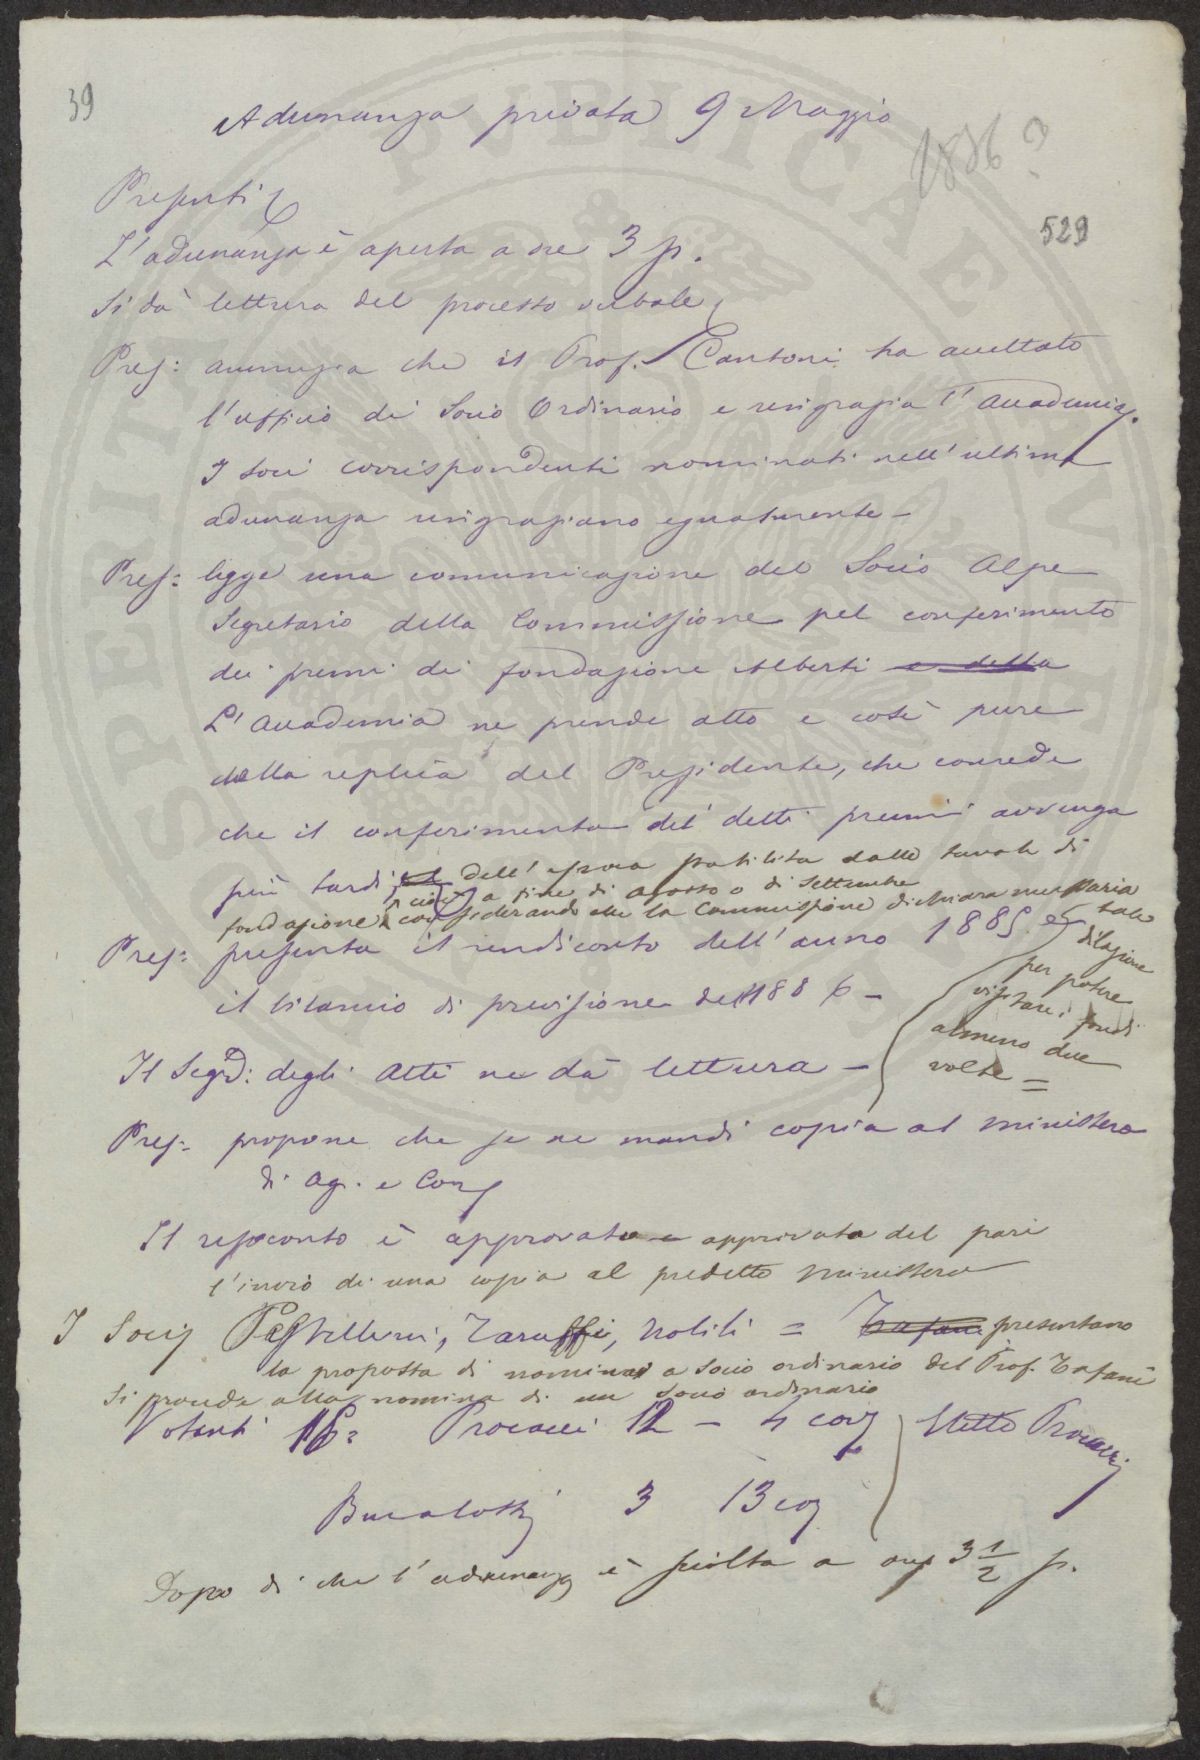 39
Adunanza privata 9 Maggio
1886?
529
Presenti
L'adunanza è aperta a ore 3 p.
Si dà lettura del processo verbale
Pres: annunzia che il Prof. Cantoni ha accettato
l'ufficio di Socio Ordinario e ringrazia l'Accademia.
I soci corrispondenti nominati nell'ultima
adunanza ringraziano egualmente –
Pres: legge una comunicazione del Socio Alpe
Segretario della Commissione pel conferimento
dei premi di fondazione Alberti e della
L'Accademia ne prende atto e così pure
della replica del Presidente, che concede
che il conferimento dei detti premi avvenga
più tardi dell'epoca stabilita dalle tavole di
fondazione cioè a fine di Agosto o di Settembre
considerando che la Commissione dichiara necessaria tale
dilazione
per potere
visitare i fondi
almeno due
volte =
Pres: presenta il rendiconto dell'anno 1885 e
il bilancio di previsione del 1886 –
Il Seg: degli Atti ne dà lettura –
Pres: propone che se ne mandi copia al Ministero
di Ag. e Com
Il resoconto è approvato e approvata del pari
l'invio di una copia al predetto Ministero
I Socij Pestellini, Taruffi, Nobili = Tafani presentano
la proposta di nomina a Socio ordinario del Prof. Tafani
Si procede alla nomina di un Socio ordinario
Votanti 16: Procacci 12 – 4 con Eletto Procacci
Bucalossi 3 13 con
Dopo di che l'adunanza è sciolta a ore 3 1/2 p.